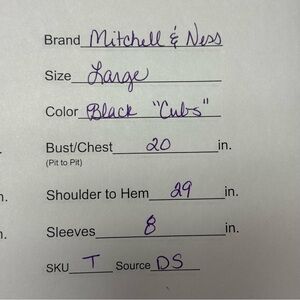 Brand Mitchell & Ness
Size Large
Color Black "Cubs"
Bust/Chest 20 in.
(Pit to Pit)
n. Shoulder to Hem 29 in.
n. Sleeves 8 in.
SKU T Source DS